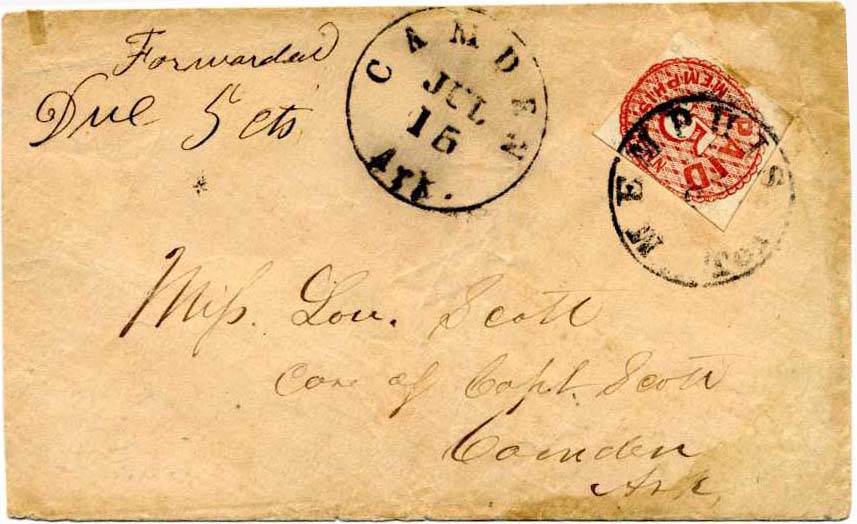 Forwarded
Due 5 cts
CAMDEN
JUL
15
Ark.
MEMPHIS
PAID
5
MEMPHIS
Miſs. Lou. Scott
Care of Capt. Scott
Camden
Ark